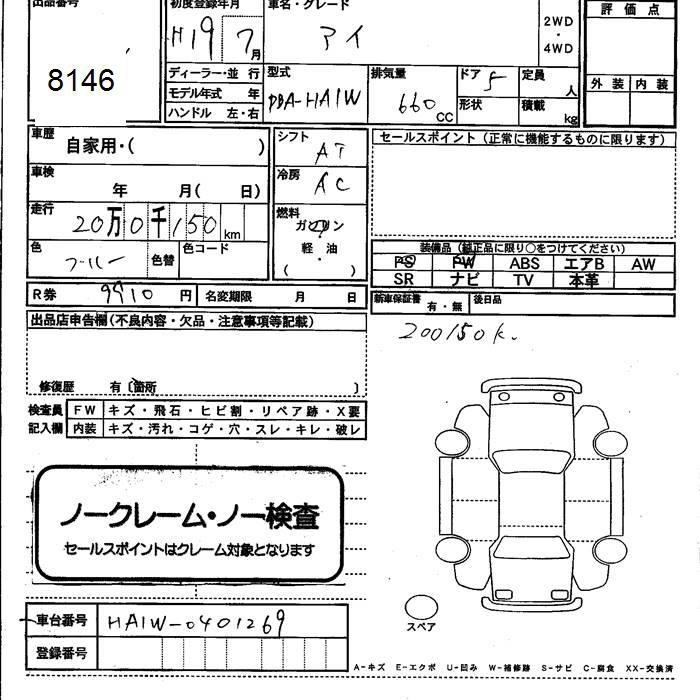 出品番号
8146
初度登録年月
H19 7月
車名・グレード
アイ
2WD
・
4WD
評価点
外装 内装
ディーラー・並行
モデル年式 年
ハンドル 左・右
型式
DBA-HA1W
排気量
660 CC
ドア 5
形状
定員 人
積載 kg
車歴 自家用・( )
車検 年 月( 日)
走行 20万0千150 km
色 ブルー 色替 色コード
シフト AT
冷房 AC
燃料 ガソリン
軽・油
( )
セールスポイント (正常に機能するものに限ります)
装備品 (純正品に限り○をつけてください)
PS PW ABS エアB AW
SR ナビ TV 本革
新車保証書 有・無 後日品
R券 9910 円 名変期限 月 日
200150k.
出品店申告欄(不良内容・欠品・注意事項等記載)
修復歴 有〔箇所 〕
検査員 FW キズ・飛石・ヒビ割・リペア跡・X要
記入欄 内装 キズ・汚れ・コゲ・穴・スレ・キレ・破レ
ノークレーム・ノー検査
セールスポイントはクレーム対象となります
車台番号 HA1W-0401269
登録番号
スペア
A-キズ E-エクボ U-凹み W-補修跡 S-サビ C-腐食 XX-交換済